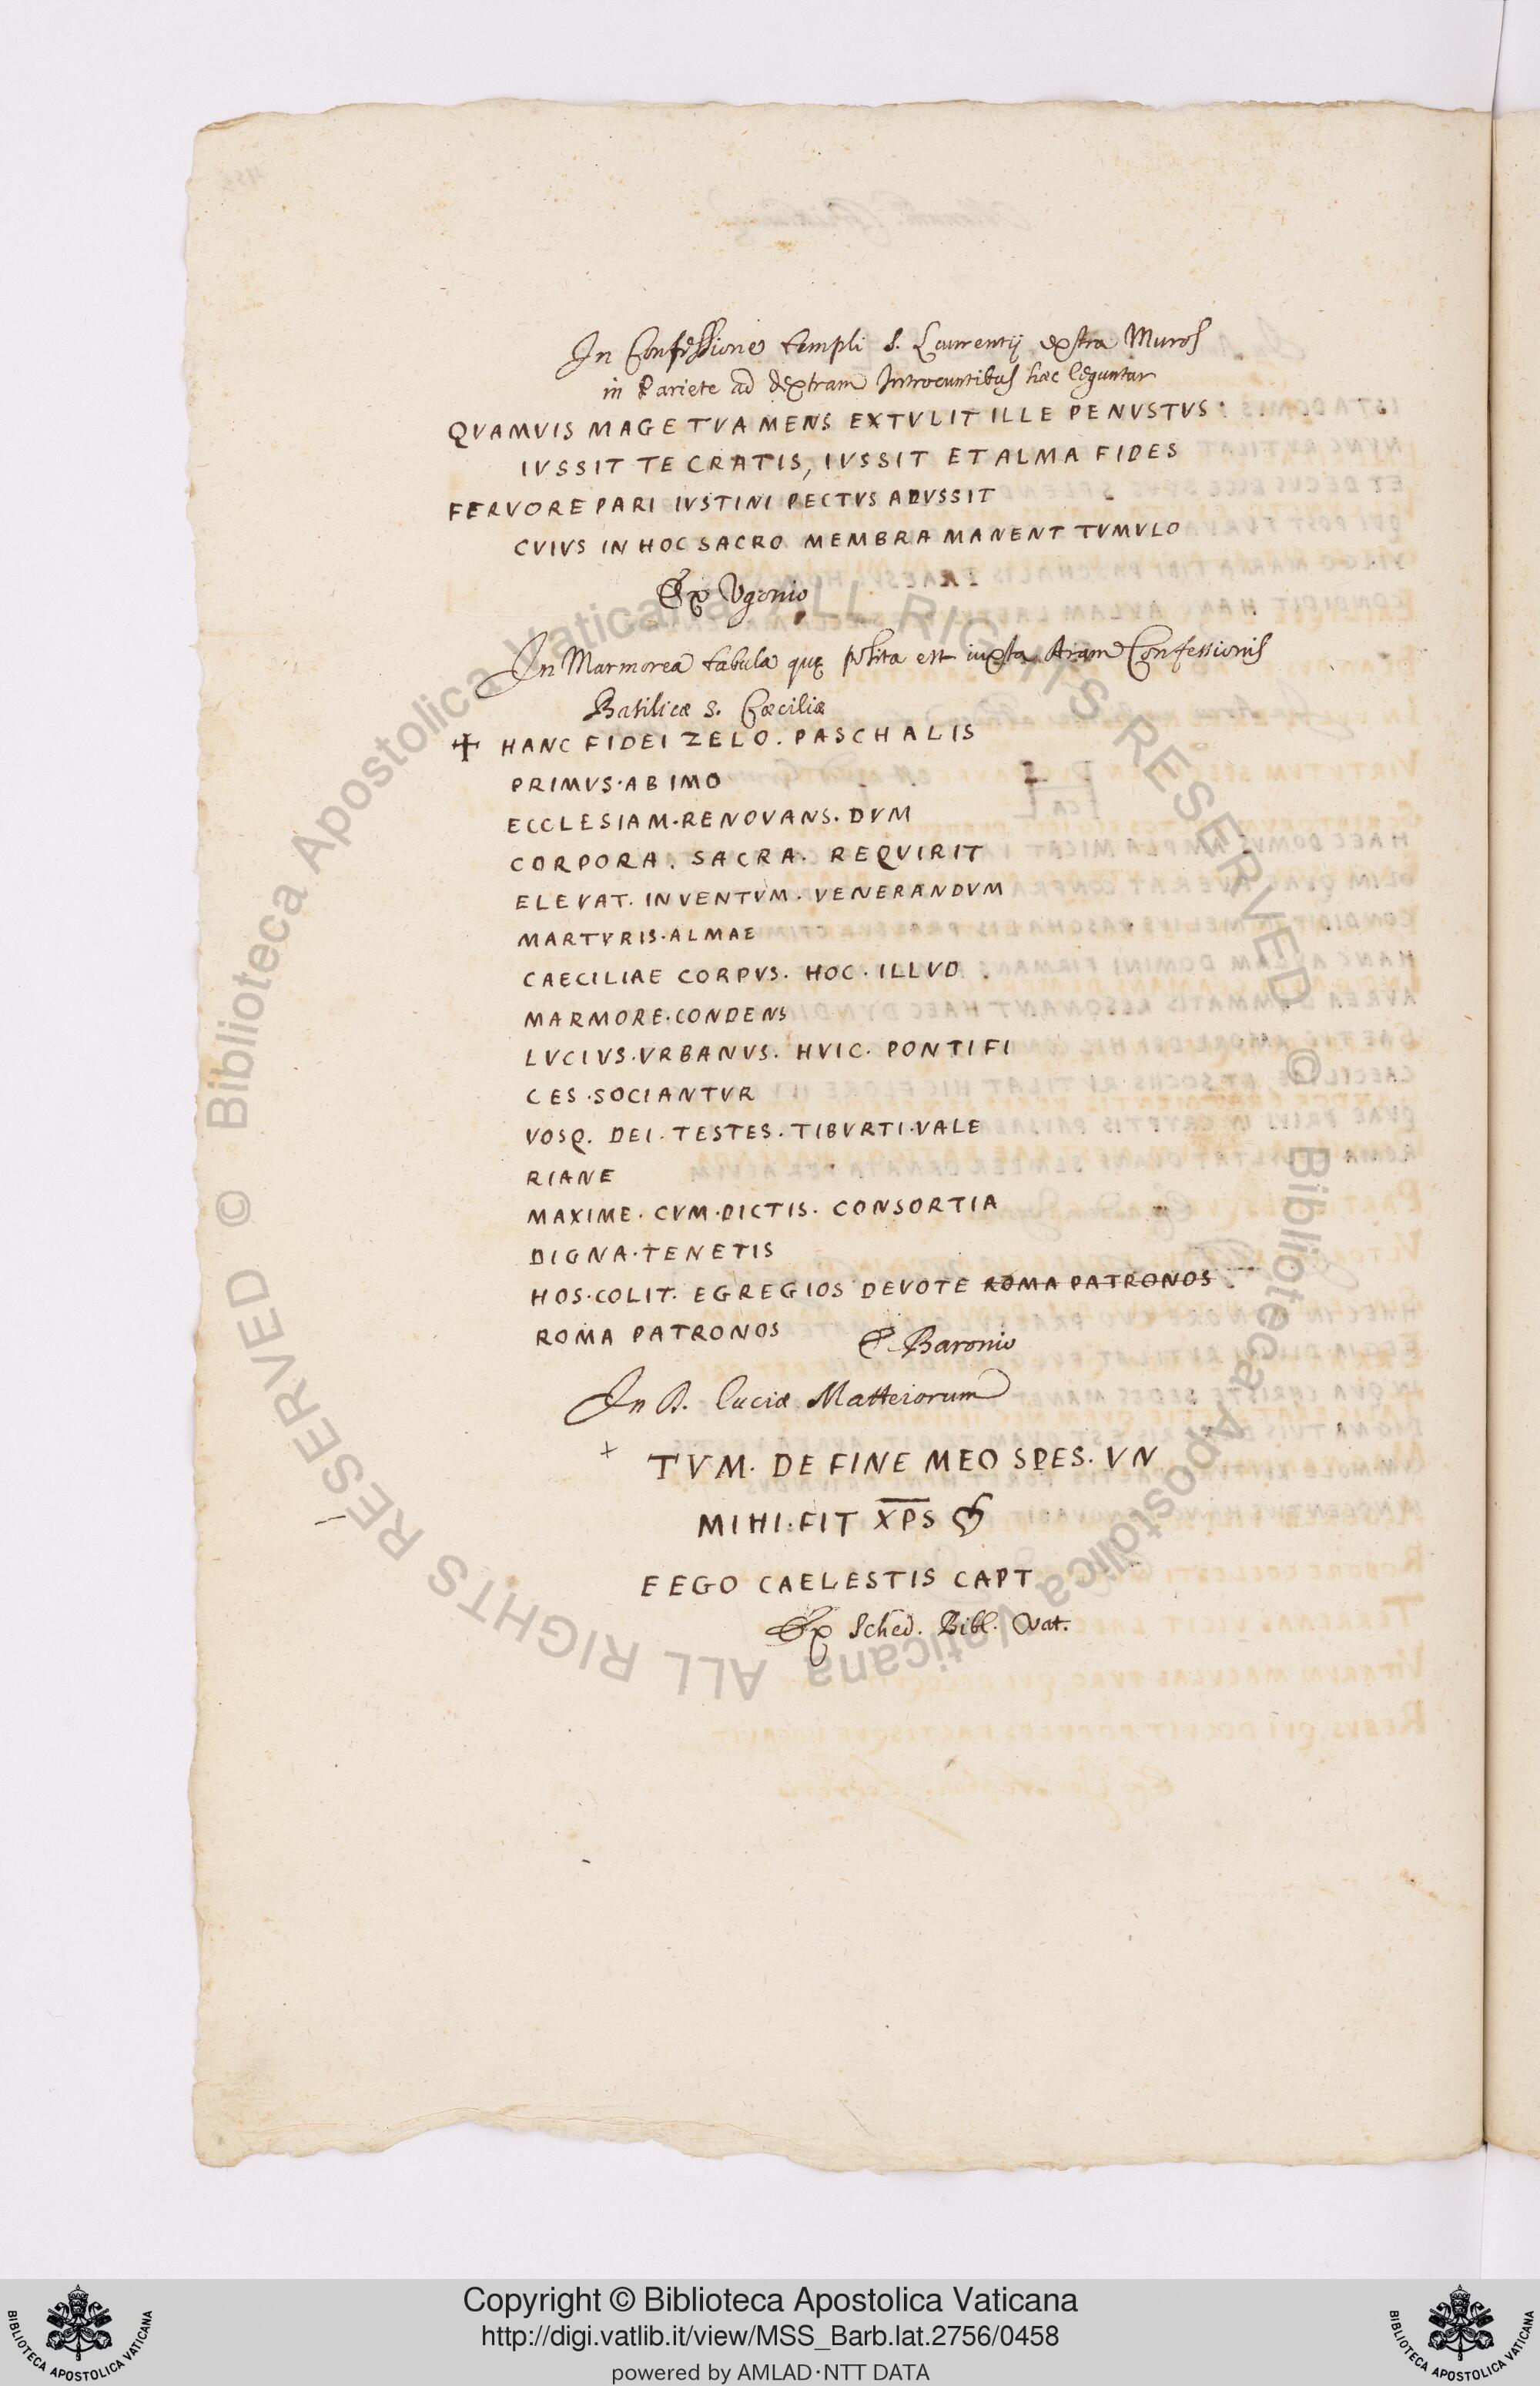 In Confessione templi S. Laurentij extra Muros
in Pariete ad dextram Introeuntibus haec leguntur
QVAMVIS MAGE TVA MENS EXTVLIT ILLE PENVSTVS
IVSSIT TE CRATIS, IVSSIT ET ALMA FIDES
FERVORE PARI IVSTINI PECTVS ADVSSIT
CVIVS IN HOC SACRO MEMBRA MANENT TVMVLO
Ex Vgonio
In Marmorea tabula quę posita est iuxta Aram Confessionis
Basilicæ S. Cæciliæ
✝ HANC FIDEI ZELO. PASCHALIS
PRIMVS·AB IMO
ECCLESIAM·RENOVANS. DVM
CORPORA. SACRA. REQVIRIT
ELEVAT. INVENTVM. VENERANDVM
MARTVRIS·ALMAE
CAECILIAE CORPVS. HOC·ILLVD
MARMORE·CONDENS
LVCIVS·VRBANVS. HVIC. PONTIFI
CES·SOCIANTVR
VOSQ. DEI·TESTES·TIBVRTI·VALE
RIANE
MAXIME·CVM·DICTIS. CONSORTIA
DIGNA·TENETIS
HOS·COLIT. EGREGIOS DEVOTE ROMA PATRONOS
ROMA PATRONOS
E Baronio
In S. Luciæ Matteiorum
+ TVM. DE FINE MEO SPES. VN
MIHI·FIT XPS ❧
EEGO CAELESTIS CAPT
Ex Sched. Bibl. Vat.
Copyright © Biblioteca Apostolica Vaticana
http://digi.vatlib.it/view/MSS_Barb.lat.2756/0458
powered by AMLAD·NTT DATA
BIBLIOTECA APOSTOLICA VATICANA
BIBLIOTECA APOSTOLICA VATICANA
© Biblioteca Apostolica Vaticana ALL RIGHTS RESERVED
© Biblioteca Apostolica Vaticana ALL RIGHTS RESERVED